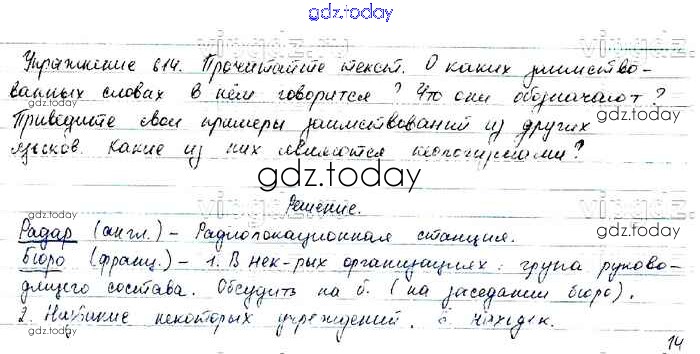 gdz.today
Упражнение 614. Прочитайте текст. О каких заимство-
ванных словах в нём говорится? Что они обозначают?
Приведите свои примеры заимствований из других
языков. Какие из них являются
gdz.today
Решение.
Радар (англ.) - Радиолокационная станция.
Бюро (франц.) - 1. В нек-рых организациях: група руково-
дящего состава. Обсудить на б. (на заседании бюро).
2. Название некоторых учреждений. Б. находок.
14